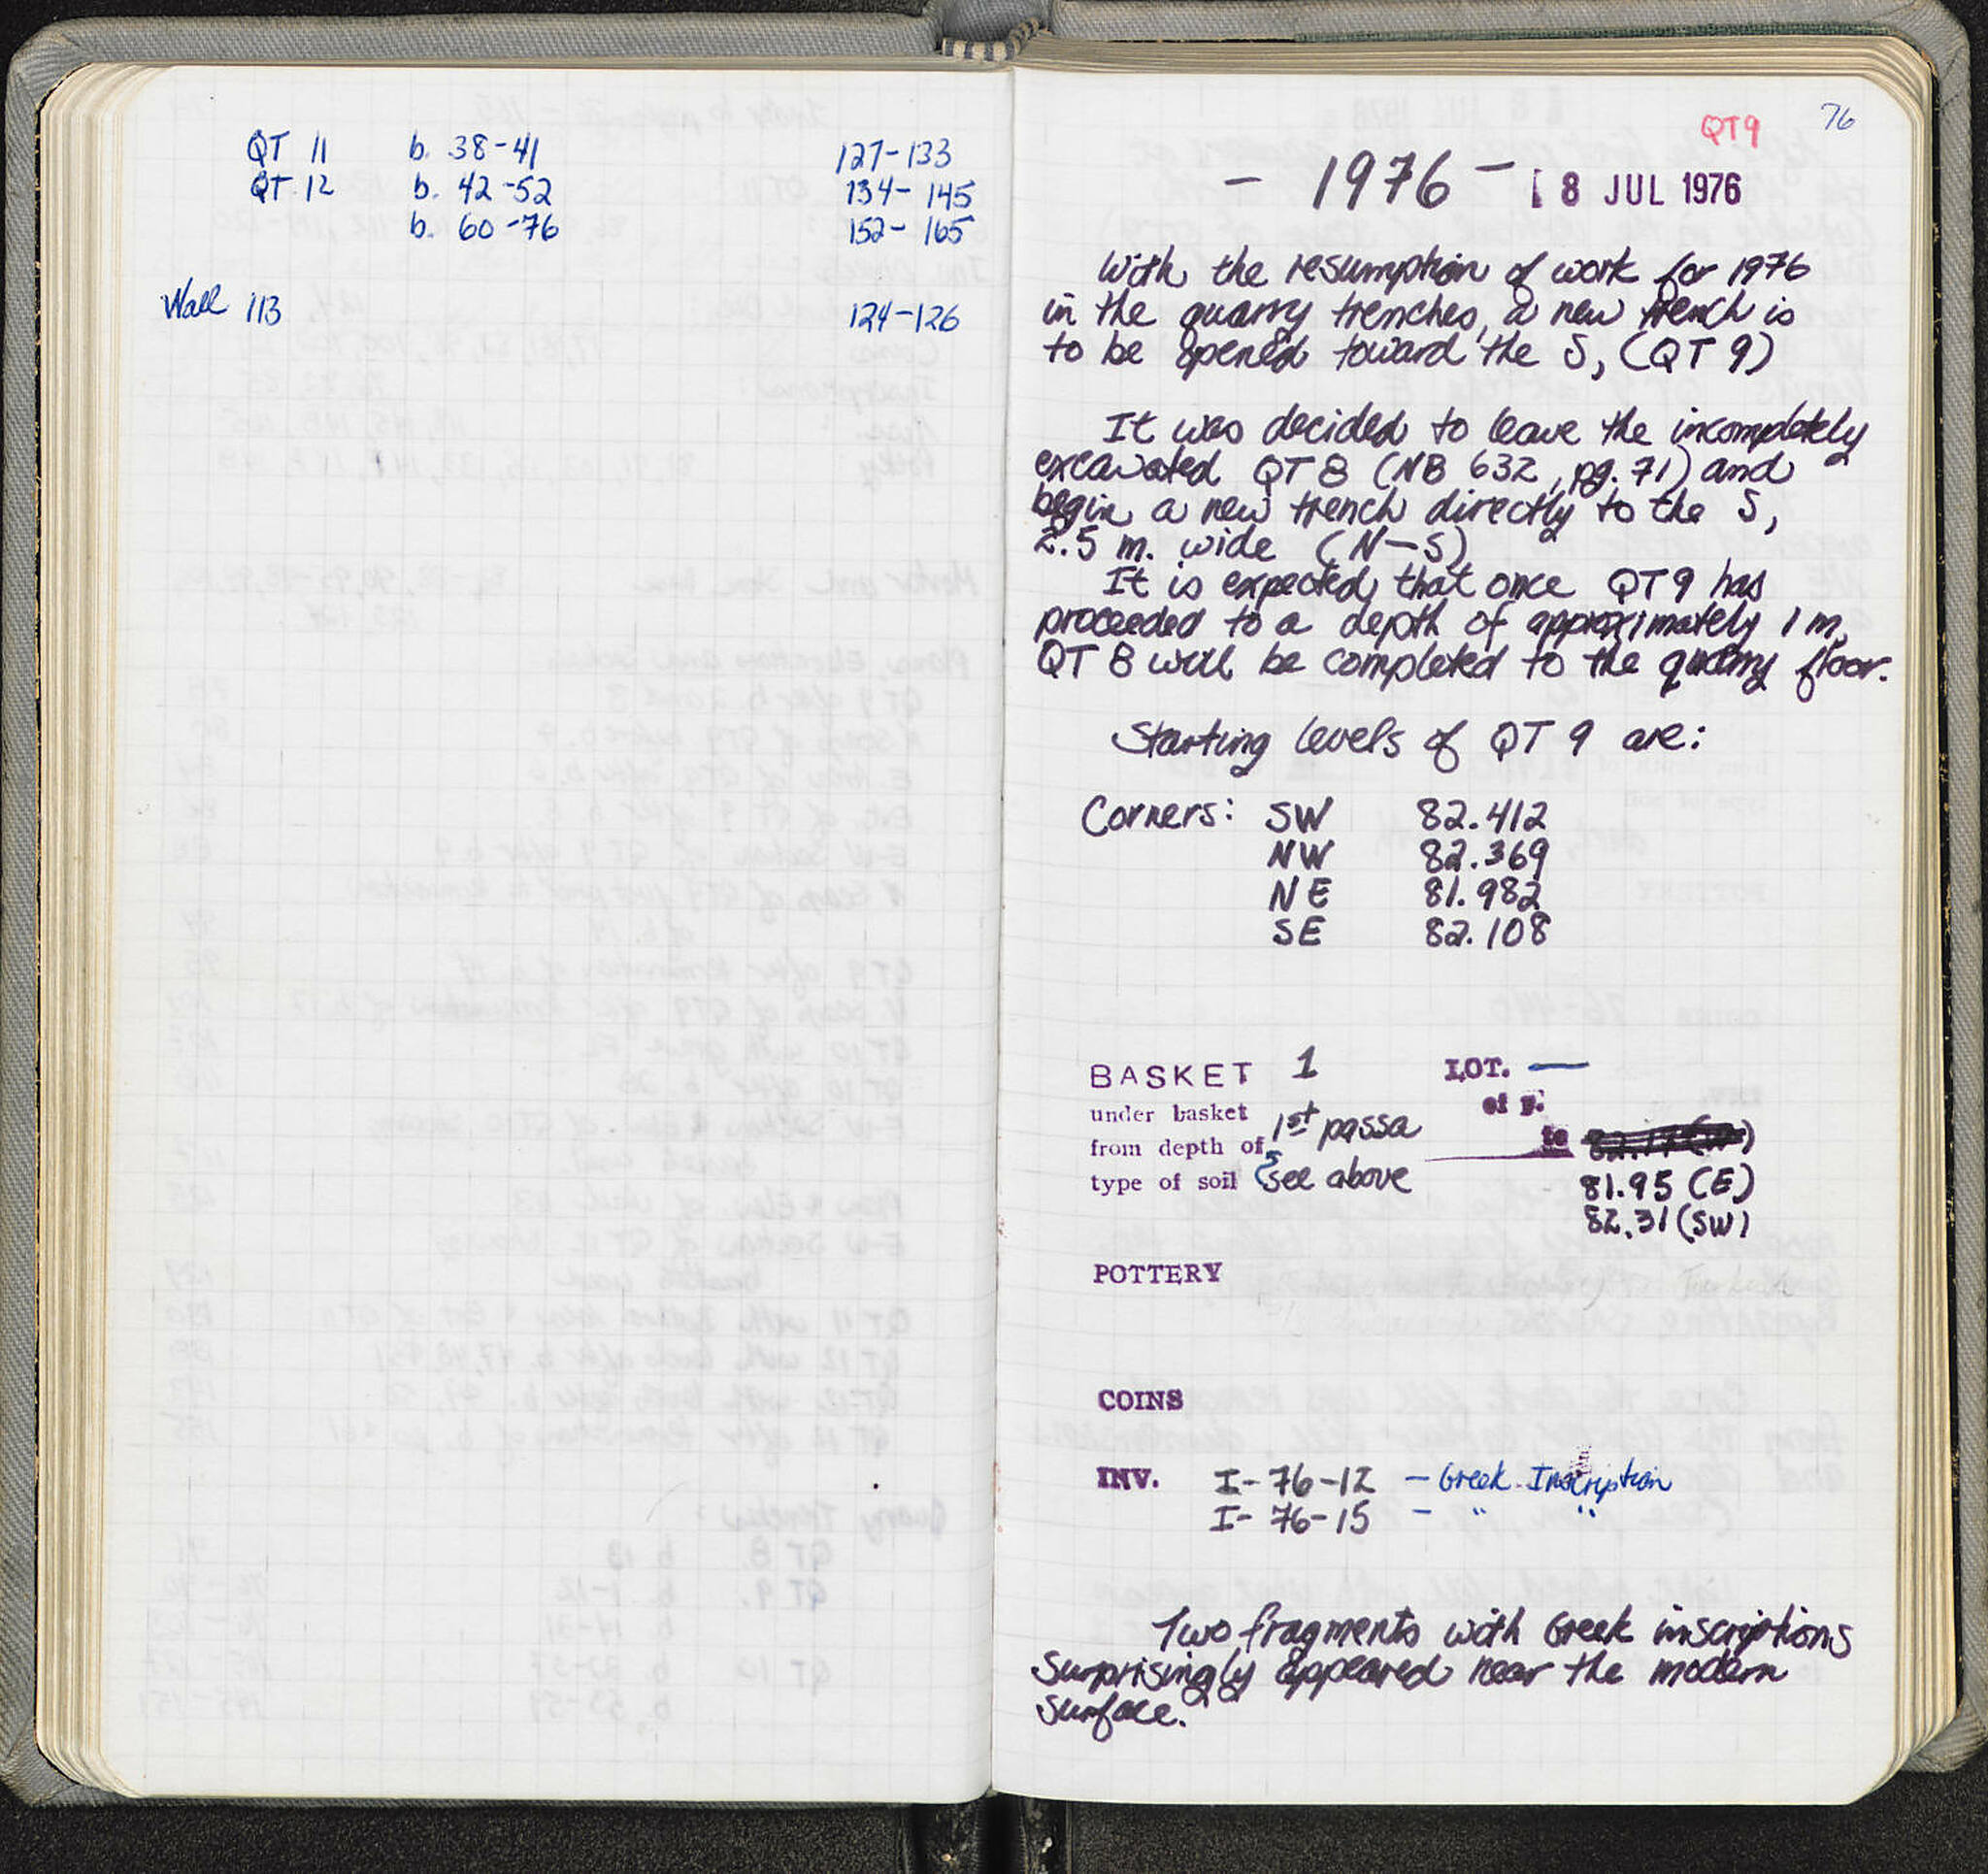 QT 11 b. 38-41 127-133
QT 12 b. 42-52 134-145
b. 60-76 152-165
Wall 113 124-126
QT9 76
- 1976 - 18 JUL 1976
With the resumption of work for 1976
in the quarry trenches, a new trench is
to be opened toward the S, (QT 9)
It was decided to leave the incompletely
excavated QT 8 (NB 632, pg. 71) and
begin a new trench directly to the S,
2.5 m. wide (N-S)
It is expected that once QT9 has
proceeded to a depth of approximately 1 m,
QT 8 will be completed to the quarry floor.
Starting levels of QT 9 are:
Corners: SW 82.412
NW 82.369
NE 81.982
SE 82.108
BASKET 1 LOT. —
under basket of p.
from depth of 1st passa to
type of soil see above 81.95 (E)
82.31 (SW)
POTTERY
COINS
INV. I-76-12 - Greek Inscription
I-76-15 - " "
Two fragments with Greek inscriptions
surprisingly appeared near the modern
surface.